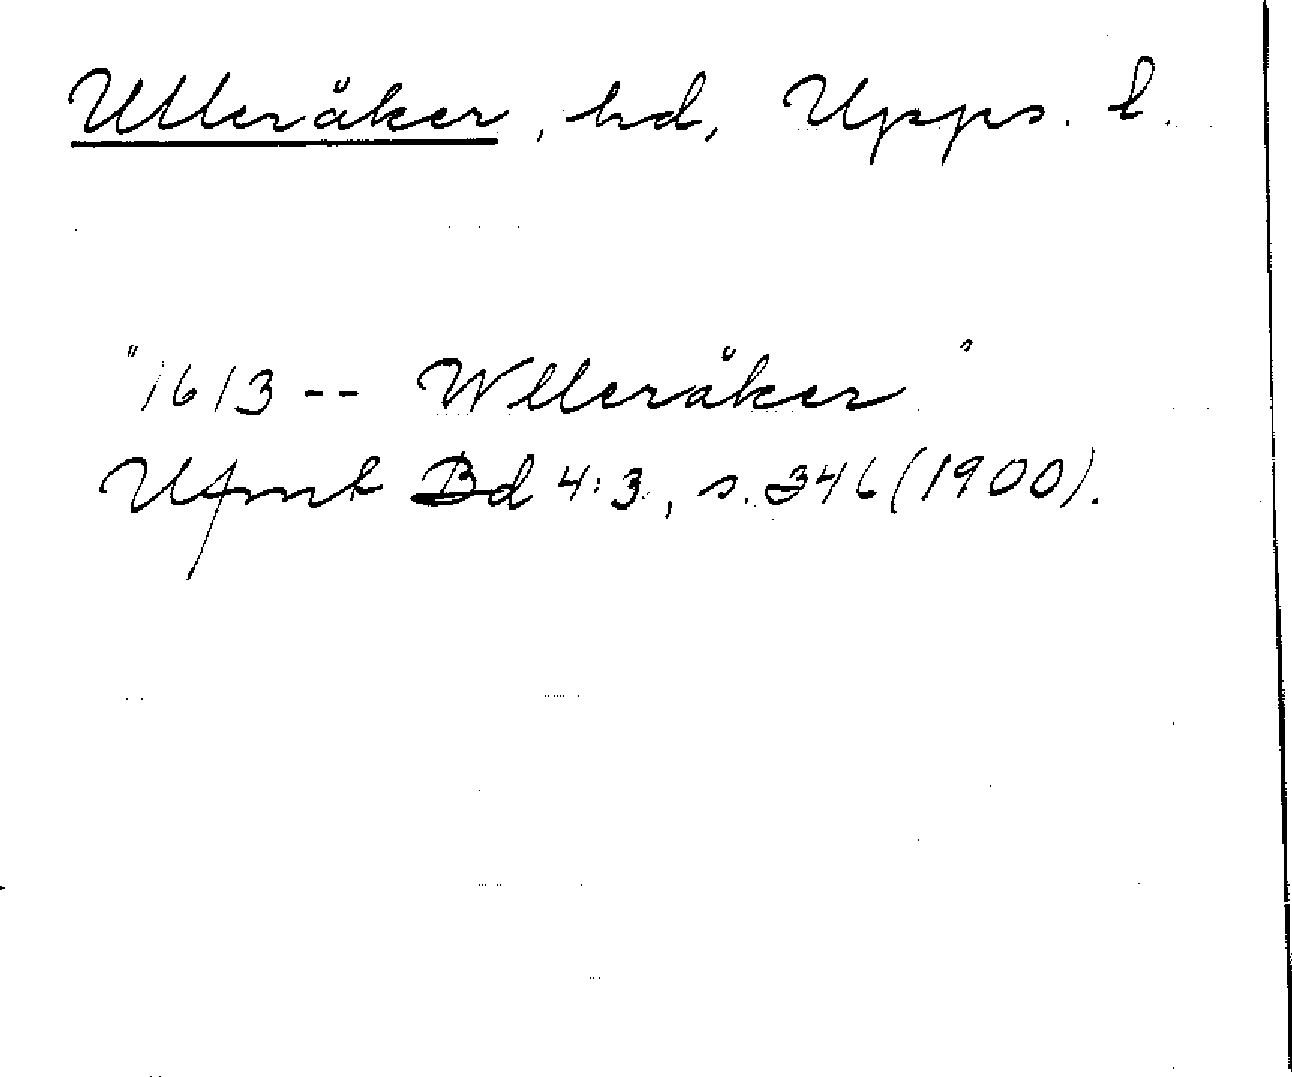 Ulleråker, hd, Upps. l.
"1613 -- Wlleråker"
Ufmt Bd 4:3, s. 346 (1900).